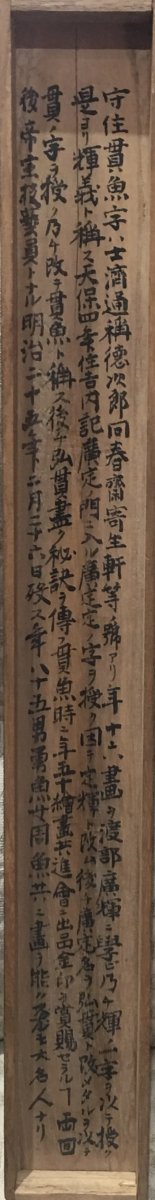 守住貫魚字ハ士済通稱徳次郎回春齋寄生軒等ノ號アリ年十六畫ヲ渡部廣輝ニ學ヒ乃チ輝ノ一字ヲ以テ授ク
是ヨリ輝義ト稱ス天保四年住吉内記廣定ノ門ニ入ル廣定定ノ字ヲ授ク因テ定輝ト改ム後チ廣定名ヲ弘貫ト改メタルヲ以テ
貫ノ字ヲ授ク乃チ改テ貫魚ト稱ス後チ弘貫畫ノ秘訣ヲ傳フ貫魚時ニ年五十繪畫共進會ニ出品金印ヲ賞賜セラルヽ了両回
後帝室技藝員トナル明治二十五年二月二十六日歿ス年八十五男勇魚女周魚共ニ畫ヲ能ク大名人ナリ